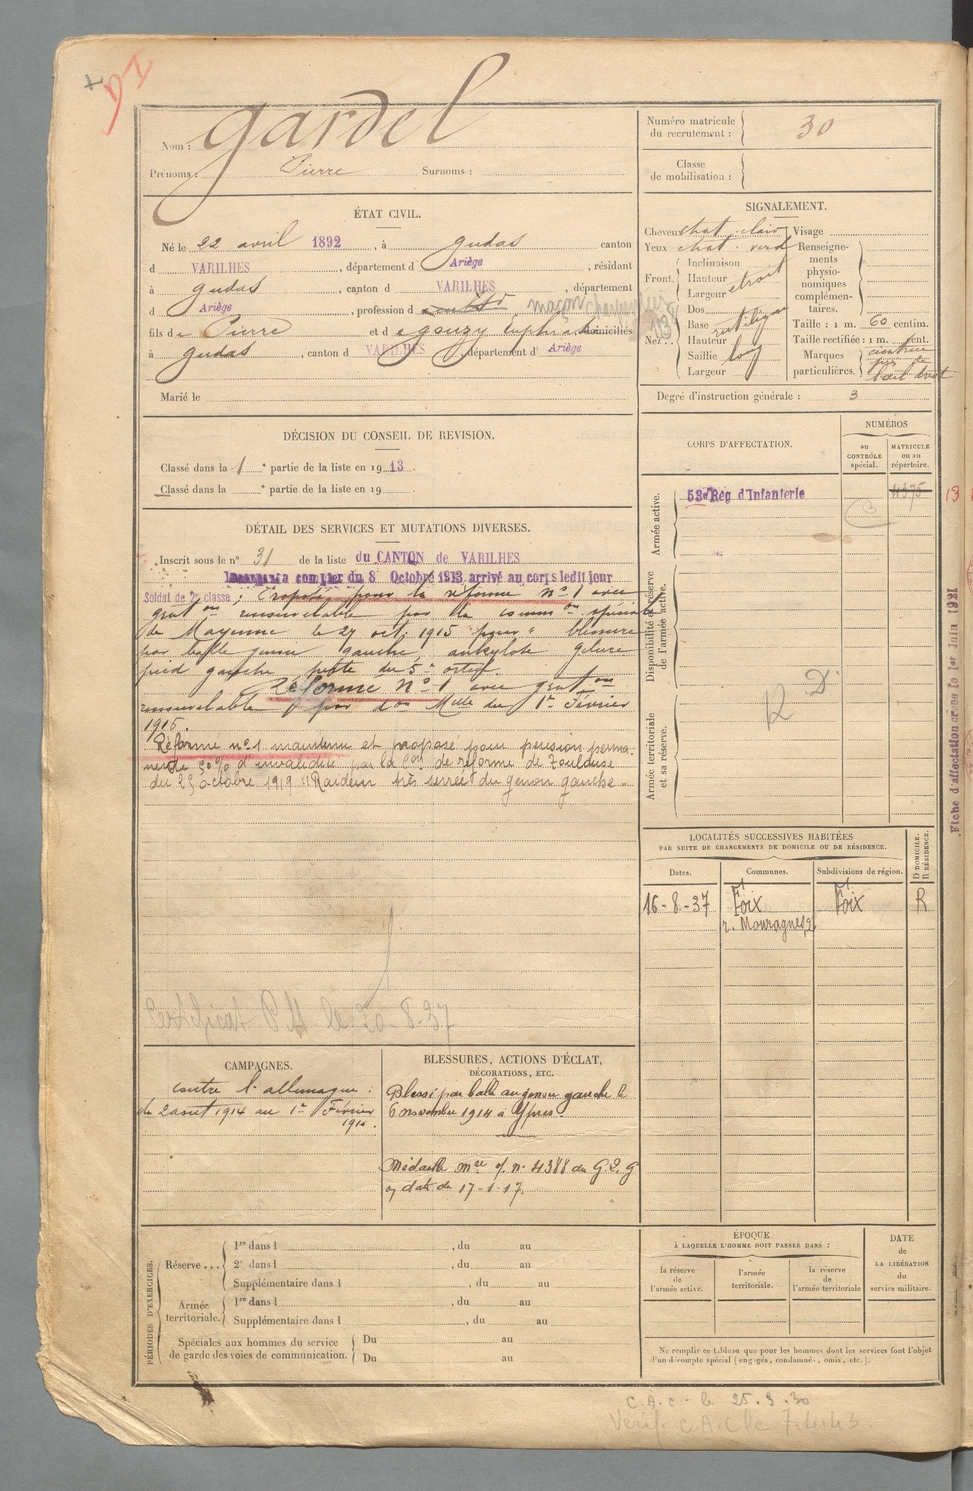 Nom : Gardel
Prénoms : Pierre Surnoms :
Numéro matricule du recrutement : 30
Classe de mobilisation :
ÉTAT CIVIL.
Né le 22 avril 1892, à Gudas canton
d VARILHES, département d Ariège, résidant
à Gudas, canton d VARILHES, département
d Ariège, profession d maçon charpentier
fils de Pierre et de Gouzy Euphrasie domiciliés
à Gudas, canton d VARILHES, département d Ariège
Marié le
SIGNALEMENT.
Cheveux chat. clair Visage
Yeux chat. verd Renseigne-
ments
physio-
nomiques
complémen-
taires.
Front. Inclinaison
Hauteur
Largeur étroit
Nez. Dos
Base rectiligne
Hauteur
Saillie long
Largeur
Taille : 1 m. 60 centim.
Taille rectifiée : 1 m. cent.
Marques particulières. cicatrice
l'œil droit
Degré d'instruction générale : 3
DÉCISION DU CONSEIL DE REVISION.
Classé dans la 1 e partie de la liste en 1913.
Classé dans la e partie de la liste en 19
CORPS D'AFFECTATION.
NUMÉROS
au CONTRÔLE spécial.
MATRICULE ou au répertoire.
Armée active.
53e Rég d'Infanterie
4375
13
Disponibilité et réserve de l'armée active.
Armée territoriale et sa réserve.
R D
Fiche d'affectation créée le 1er Juin 1921
DÉTAIL DES SERVICES ET MUTATIONS DIVERSES.
Inscrit sous le n° 31 de la liste du CANTON de VARILHES
a compter du 8 Octobre 1913 arrivé au corps ledit jour
Soldat de 2e classe ; Proposé pour la réforme n° 1 avec
grat on renouvelable par la comm on spéciale
de Mayenne le 27 oct. 1915 pour " blessure
par balle genou gauche ankylose gelure
pied gauche perte du 5e orteil.
Réformé N° 1 avec grat on
renouvelable par don Mlle du 1er Février
1916.
Réforme n° 1 maintenue et proposé pour pension perma-
nente 50% d'invalidité par la Con de réforme de Toulouse
du 25 octobre 1919 "Raideur très serrée du genou gauche -
Certificat le 20-8-37
LOCALITÉS SUCCESSIVES HABITÉES
PAR SUITE DE CHANGEMENTS DE DOMICILE OU DE RÉSIDENCE.
Dates. Communes. Subdivisions de région. D DOMICILE. R RÉSIDENCE.
16-8-37 Foix Foix R
r. Mouragnes, 2
CAMPAGNES.
contre l'allemagne :
du 2 aout 1914 au 1er Février
1916.
BLESSURES, ACTIONS D'ÉCLAT,
DÉCORATIONS, ETC.
Blessé par balle au genou gauche le
6 novembre 1914 à Ypres.
Médaille mre o/. n° 4388 du G.Q.G
en date du 17-1-17.
PÉRIODES D'EXERCICES.
Réserve... 1re dans l , du au
2e dans l , du au
Supplémentaire dans l , du au
Armée territoriale. 1re dans l , du au
Supplémentaire dans l , du au
Spéciales aux hommes du service
de garde des voies de communication. Du au
Du au
ÉPOQUE
À LAQUELLE L'HOMME DOIT PASSER DANS :
la réserve de l'armée active.
l'armée territoriale.
la réserve de l'armée territoriale
DATE de LA LIBÉRATION du service militaire.
Ne remplir ce tableau que pour les hommes dont les services font l'objet
d'un décompte spécial (engagés, condamnés, omis, etc.).
C.A.C - le 25.3.30
Vérif. C.A.C le 7.4.43